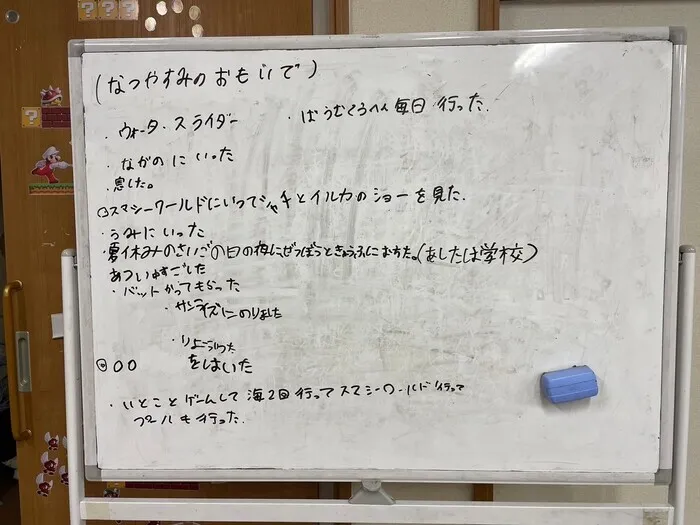 (なつやすみの おもいで)
・ウォーター スライダー
・ばうむくうへん 毎日 行った.
・ながのにいった
・息した。
スマシーワールドにいってシャチとイルカのショーを見た.
・うみにいった
・夏休みのさいごの日の夜にぜつぼうときょうふにおちた。(あしたは学校)
・バットかってもらった
・サンライズにのりました
をはいた
・いとことゲームして 海2回 行って スマシーワールド行って
プールも行った.